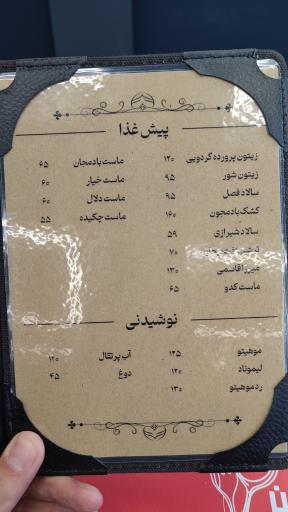 پیش غذا
زیتون پرورده گردویی ۱۲۰
زیتون شور ۹۵
سالاد فصل ۹۵
کشک بادمجون ۱۶۰
سالاد شیرازی ۵۹
۷۰
میرزاقاسمی ۱۳۰
ماست کدو ۶۵
ماست بادمجان ۶۵
ماست خیار ۶۰
ماست دلال ۶۰
ماست چکیده ۵۵
نوشیدنی
موهیتو ۱۲۵
لیموناد ۱۲۰
ردموهیتو ۱۳۰
آب پرتقال ۱۲۰
دوغ ۴۵